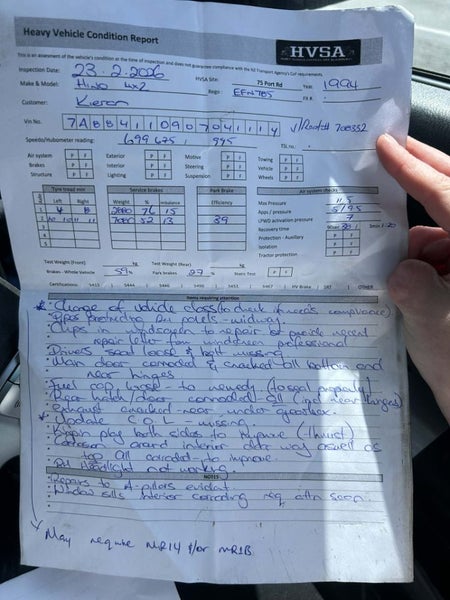 Heavy Vehicle Condition Report
HVSA
This is an assessment of the vehicle's condition at the time of inspection and does not guarantee compliance with the NZ Transport Agency's CoF requirements.
Inspection Date: 23-2-2026 HVSA Site: 75 Port Rd Year: 1994
Make & Model: Hino 4x2 Rego: EFN785
Customer: Kieran
Vin No. 7A88411090704111
Speedo/Hubometer reading: 699675 995
Air system P F Exterior P F Motive P F Towing P F
Brakes P F Interior P F Steering P F Vehicle P F
Structure P F Lighting P F Suspension P F Wheels P F
Tyre tread mm Service brakes Park Brake Air system checks
Left Right Weight % Imbalance Efficiency
Max Pressure
Apps / pressure 5/95
LPWD activation pressure 7
Recovery time
Protection - Auxiliary
Isolation
Tractor protection
76 15
52 13 39
Test Weight (Front) Test Weight (Rear)
Brakes - Whole Vehicle 59% Park brakes 27 % Static Test P F
Certification: 5413 5444 5446 5461 5490 5451 5467 HV Brake SRT OTHER
Items requiring attention
* Change of vehicle class (to check if meets compliance)
Pipes protective air
- midway.
Chips in windscreen to repair or provide recent
repair letter from windscreen professional
Drivers seat loose & bolt missing
Main door corroded & cracked sill bottom and
near hinges
Fuel cap loose - to remedy (to seal properly)
Rear hatch/door corroded - sill (incl near hinges)
Exhaust cracked near under gearbox.
* Update C.O.L - missing.
Kingpin play both sides to improve (-thrust)
Corrosion around interior door way aswell as
top
corroded - to improve.
RH Headlight not working.
NOTES
Repairs to A-pillars evident.
Window sills interior corroding req attn soon.
May require MR14 &/or MR1B